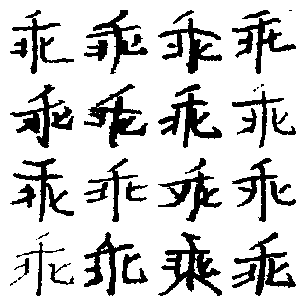 乖乖乖乖
乖乖乖乖
乖乖乖乖
乖乖乖乖